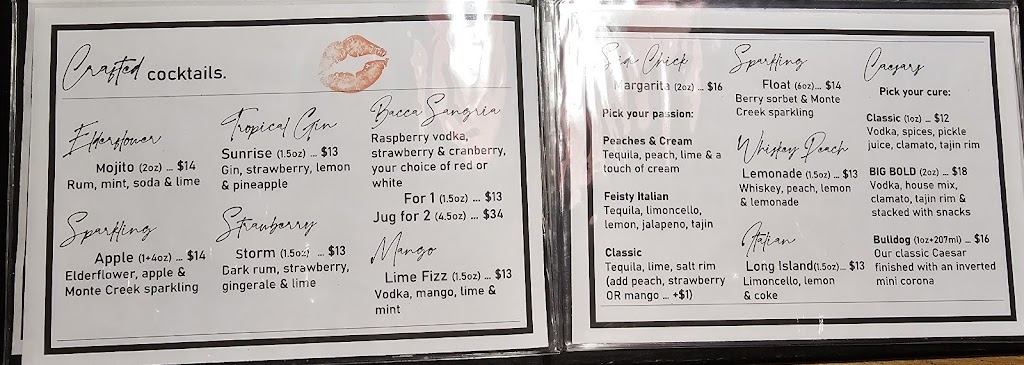 Crafted cocktails.
Elderflower
Mojito (2oz) ... $14
Rum, mint, soda & lime
Sparkling
Apple (1+4oz) ... $14
Elderflower, apple &
Monte Creek sparkling
Tropical Gin
Sunrise (1.5oz) ... $13
Gin, strawberry, lemon
& pineapple
Strawberry
Storm (1.5oz) ... $13
Dark rum, strawberry,
gingerale & lime
Bacca Sangria
Raspberry vodka,
strawberry & cranberry,
your choice of red or
white
For 1 (1.5oz) ... $13
Jug for 2 (4.5oz) ... $34
Mango
Lime Fizz (1.5oz) ... $13
Vodka, mango, lime &
mint
Chick
Margarita (2oz) ... $16
Pick your passion:
Peaches & Cream
Tequila, peach, lime & a
touch of cream
Feisty Italian
Tequila, limoncello,
lemon, jalapeno, tajin
Classic
Tequila, lime, salt rim
(add peach, strawberry
OR mango ... +$1)
Sparkling
Float (6oz)... $14
Berry sorbet & Monte
Creek sparkling
Whiskey Peach
Lemonade (1.5oz) ... $13
Whiskey, peach, lemon
& lemonade
Italian
Long Island(1.5oz)... $13
Limoncello, lemon
& coke
Caesars
Pick your cure:
Classic (1oz) ... $12
Vodka, spices, pickle
juice, clamato, tajin rim
BIG BOLD (2oz) ... $18
Vodka, house mix,
clamato, tajin rim &
stacked with snacks
Bulldog (1oz+207ml) ... $16
Our classic Caesar
finished with an inverted
mini corona